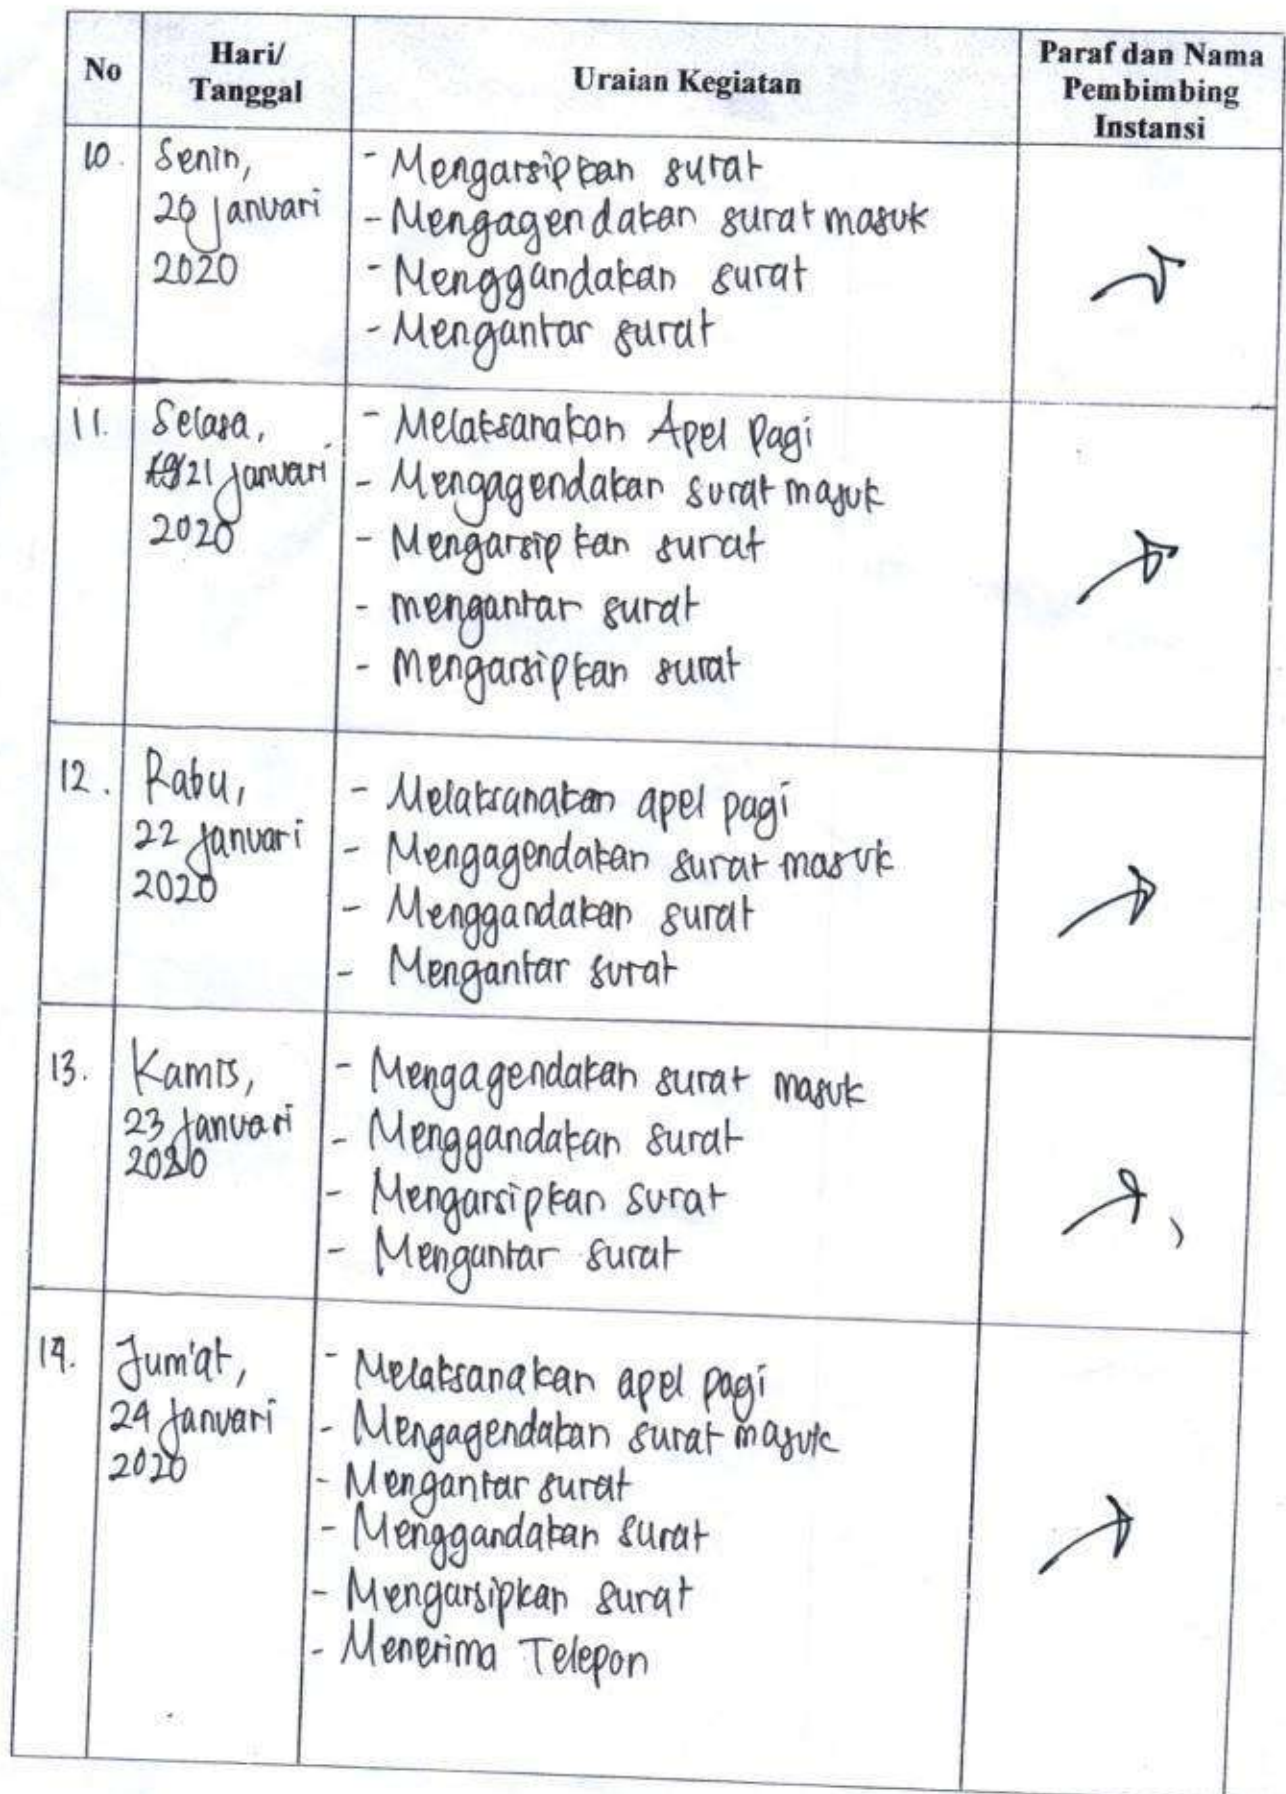 No
Hari/
Tanggal
Uraian Kegiatan
Paraf dan Nama
Pembimbing
Instansi
10.
Senin,
20 Januari
2020
- Mengarsipkan surat
- Mengagendakan surat masuk
- Menggandakan surat
- Mengantar surat
11.
Selasa,
21 Januari
2020
- Melaksanakan Apel Pagi
- Mengagendakan surat masuk
- Mengarsipkan surat
- mengantar surat
- Mengarsipkan surat
12.
Rabu,
22 Januari
2020
- Melaksanakan apel pagi
- Mengagendakan surat masuk
- Menggandakan surat
- Mengantar surat
13.
Kamis,
23 Januari
2020
- Mengagendakan surat masuk
- Menggandakan surat
- Mengarsipkan surat
- Mengantar surat
14.
Jum'at,
24 Januari
2020
- Melaksanakan apel pagi
- Mengagendakan surat masuk
- Mengantar surat
- Menggandakan surat
- Mengarsipkan surat
- Menerima Telepon